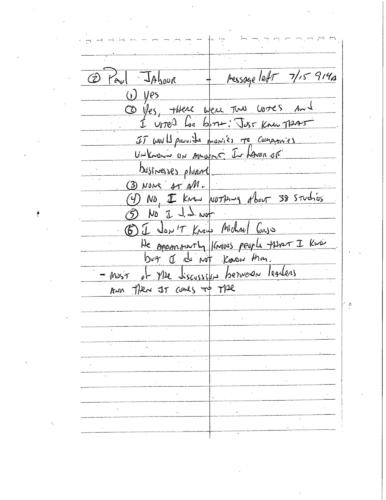 ② Paul Jabour - Message left 7/15 914A
① Yes
② Yes, there were two votes and
I voted for both: Just knew that
It would provide monies to companies
Unknown on amount. In favor of
businesses plural
③ None at all.
④ No, I knew nothing about 38 Studios
⑤ No I did not
⑥ I don't know Michael Corso
He apparently knows people that I know
but I do not know him.
- most of the discussion between leaders
and then it comes to the